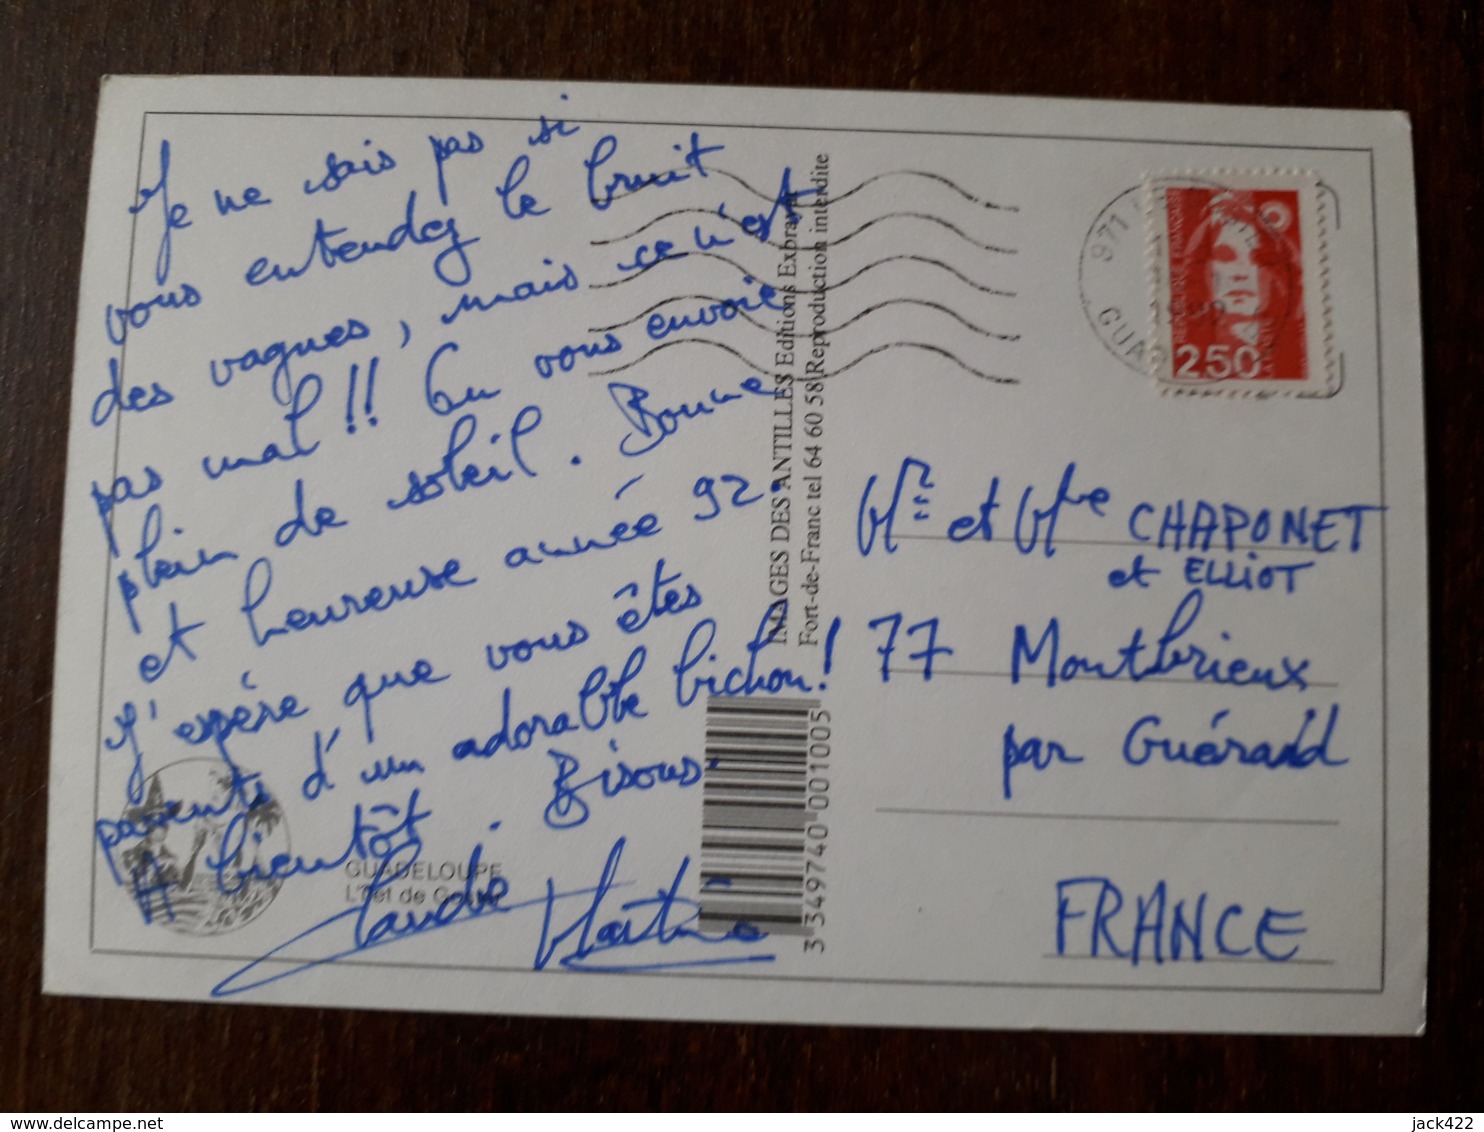 Je ne sais pas si
vous entendez le bruit
des vagues, mais ce n'est
pas mal !! On vous envoie
plein de soleil. Bonne
et heureuse année 92.
J'espère que vous êtes
parents d'un adorable bichon !
A bientôt. Bisous.
Claude Martine
GUADELOUPE
L'Ilet de Gosier
IMAGES DES ANTILLES Editions Exbrayat
Fort-de-Franc tel 64 60 58 Reproduction interdite
3 349740 001005
971
GUA
2,50
Mr et Mme CHAPONET
et ELLIOT
77 Montbrieux
par Guérard
FRANCE
delcampe.net
jack422